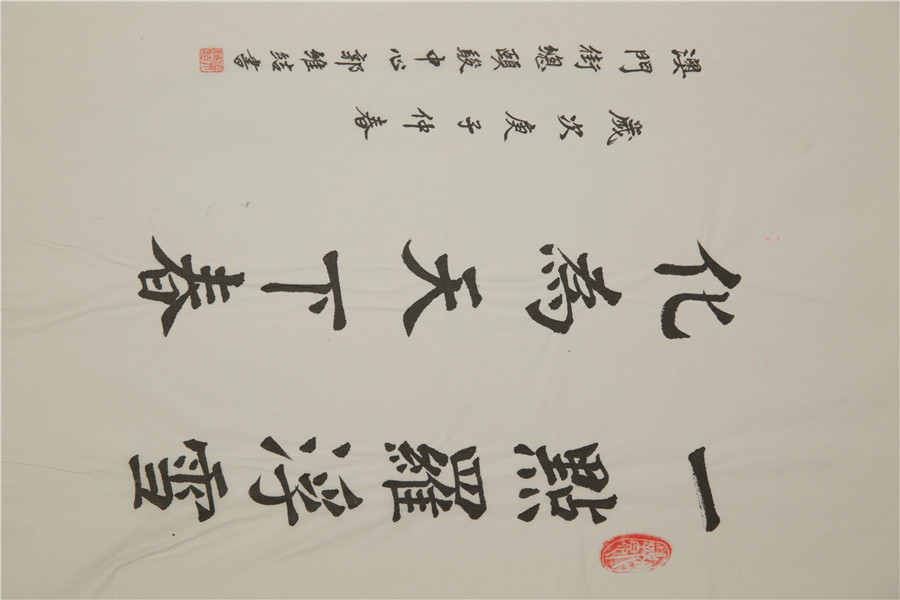 一點羅浮雪
化為天下春
歲次庚子仲春
澳門街總頤駿中心郭維結書